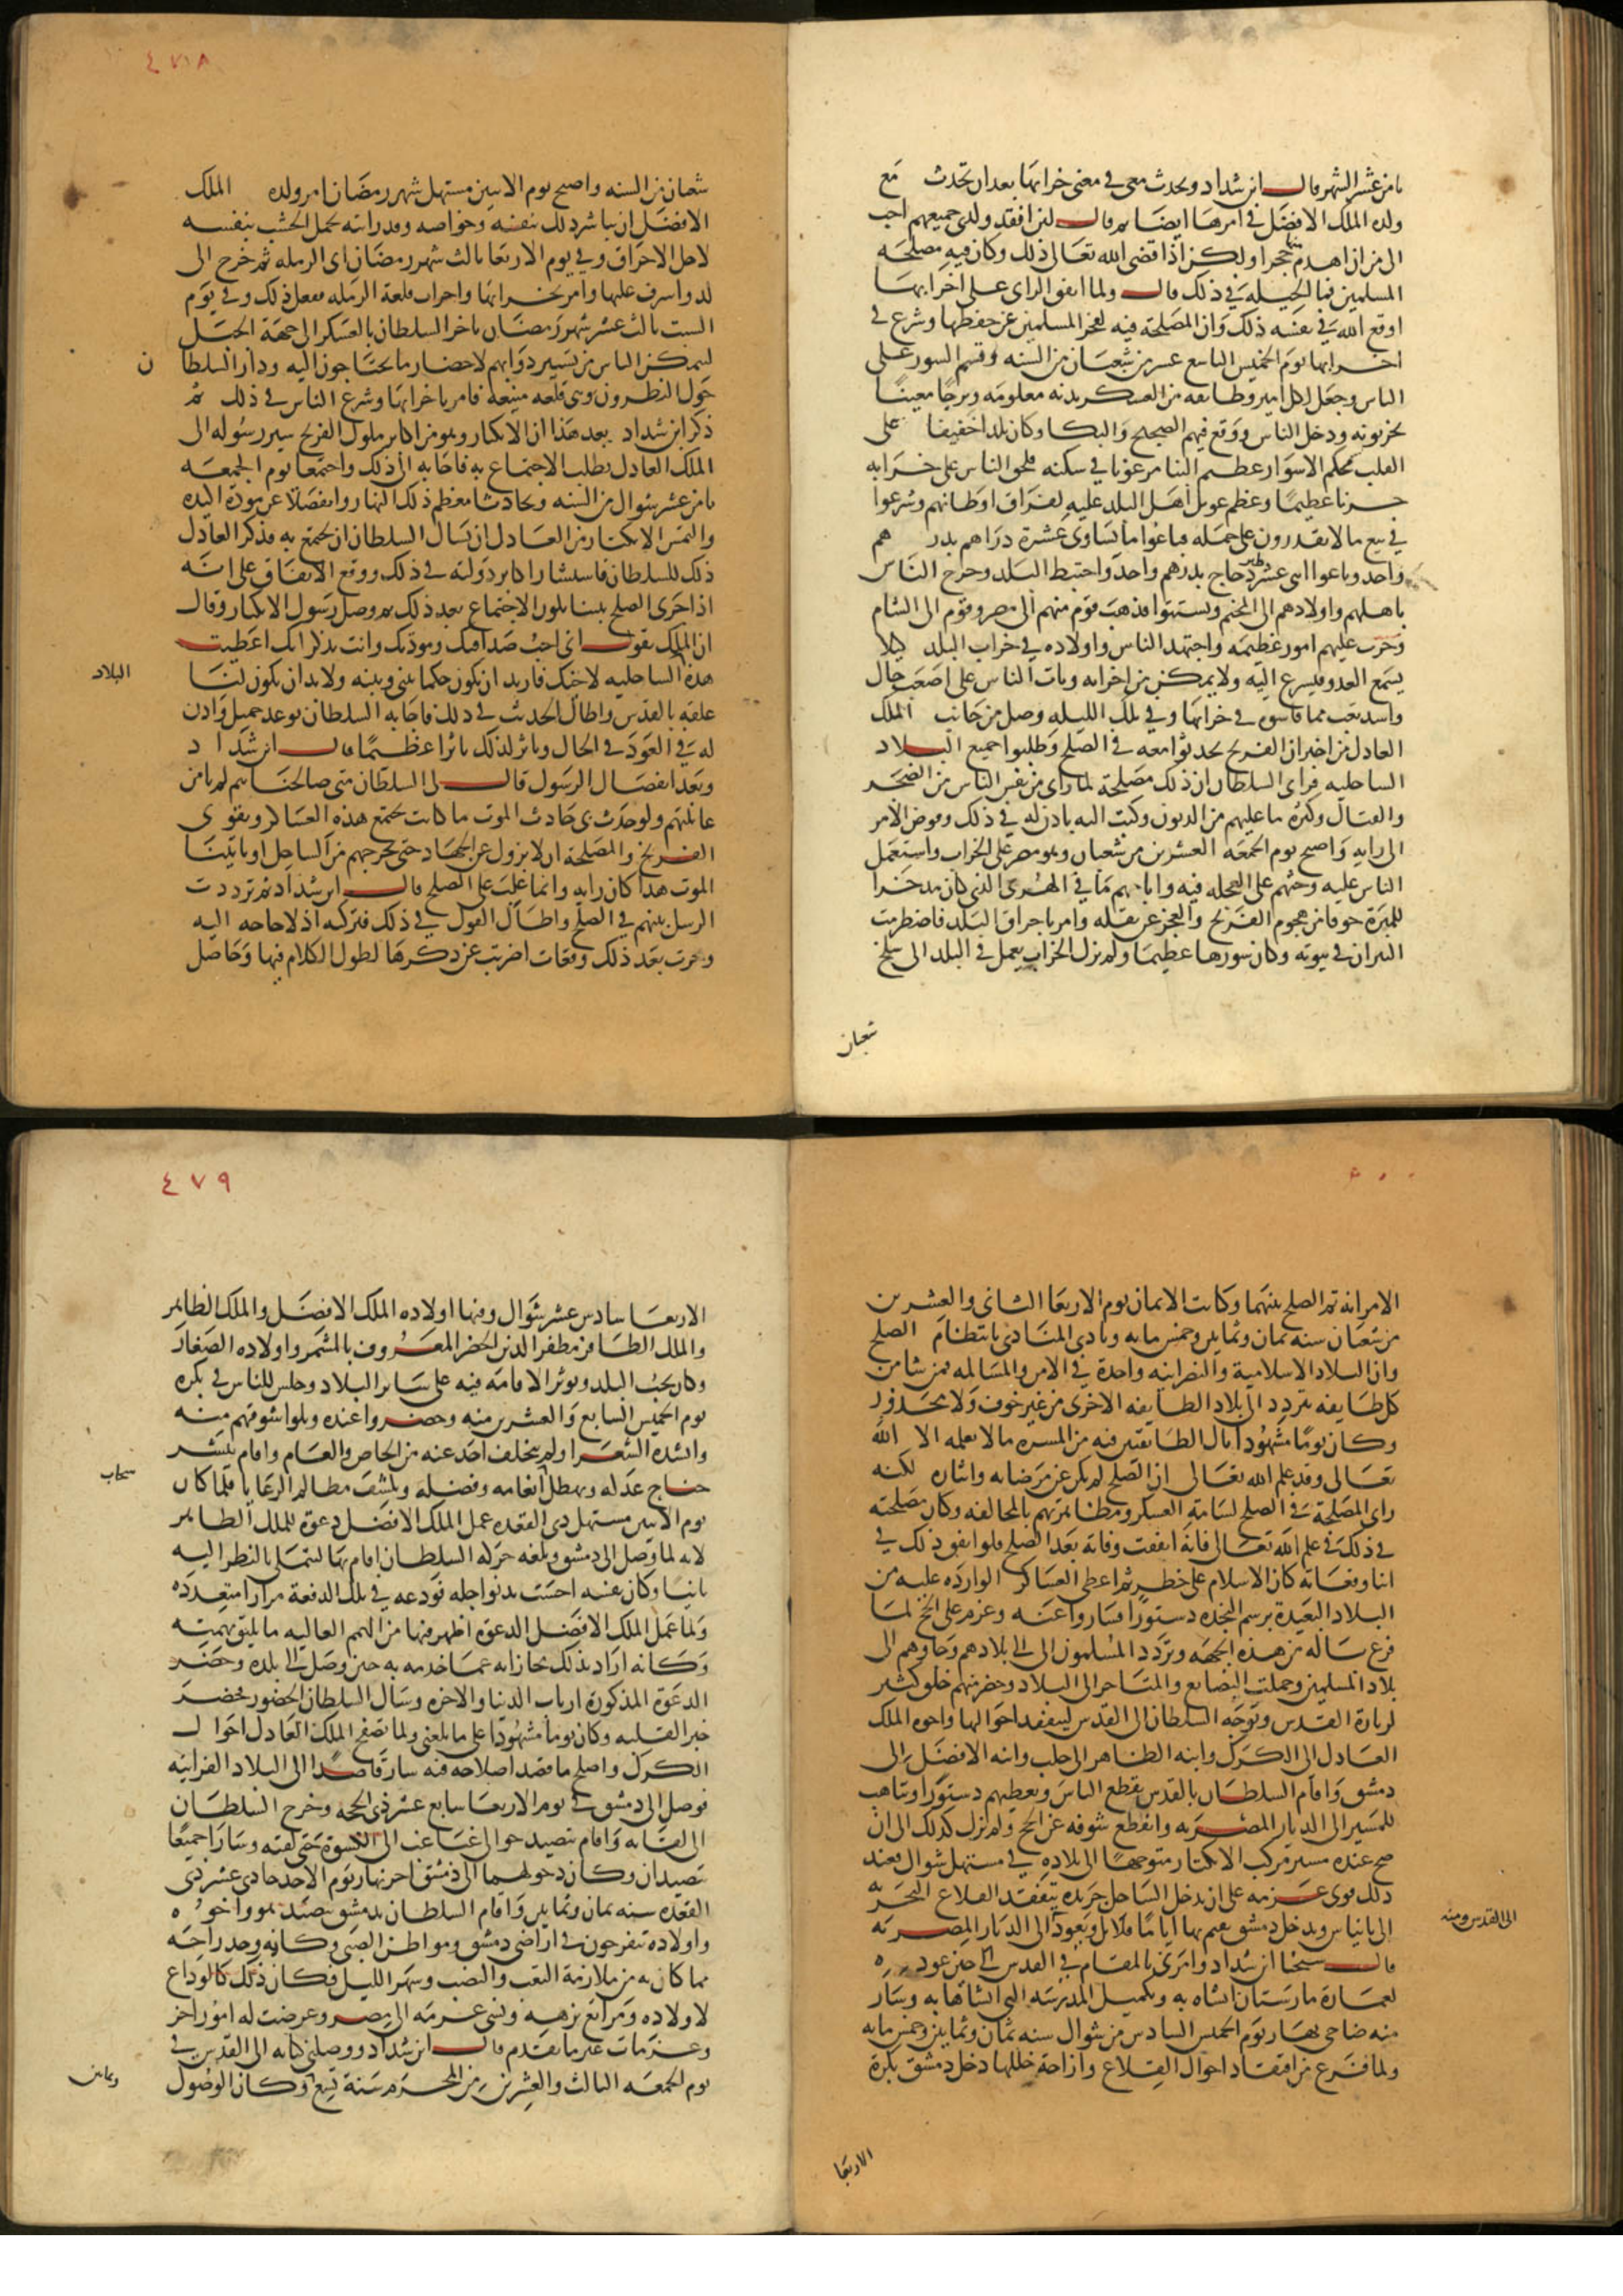 ثامن عشر الشهر قال ابن شداد وتحدث معي في معنى خرابها بعد ان تحدث مع
ولده الملك الافضل في امرها ايضا ثم قال لئن افقد ولدي جميعهم احب
الي من ان اهدم منها حجرا ولكن اذا قضى الله تعالى ذلك وكان فيه مصلحة
المسلمين فما الحيلة في ذلك قال ولما اتفق الراي على اخرابها
اوقع الله في نفسه ذلك وان المصلحة فيه لعجز المسلمين عن حفظها وشرع في
اخرابها يوم الخميس التاسع عشر من شعبان من السنه وقسم السور على
الناس وجعل لكل امير وطائفه من العسكر بدنه معلومه وبرجا معينا
يخربونه ودخل الناس ووقع فيهم الضجيج والبكا وكان بلدا خفيفا على
القلب محكم الاسوار عظيم البنا مرغوبا في سكنه فلحق الناس على خرابه
حزنا عظيما وعظم عويل اهل البلد عليه لفراق اوطانهم وشرعوا
في بيع ما لا يقدرون على حمله فباعوا ما يساوي عشرة دراهم بدرهم
واحد وباعوا اثني عشر طير دجاج بدرهم واحد واختبط البلد وخرج الناس
باهلهم واولادهم الى المخيم وتشتتوا فذهب قوم منهم الى مصر وقوم الى الشام
وجرت عليهم امور عظيمه واجتهد الناس واولاده في خراب البلد كيلا
يسمع العدو فيسرع اليه ولا يمكن من اخرابه وبات الناس على اصعب حال
واشد تعب مما قاسوه في خرابها وفي تلك الليله وصل من جانب الملك
العادل من اخبر ان الفرنج تحدثوا معه في الصلح وطلبوا جميع البلاد
الساحليه فراى السلطان ان ذلك مصلحة لما راى من نفس الناس من الضجر
والقتال وكثره ما عليهم من الديون وكتب اليه ياذن له في ذلك وفوض الامر
الى رايه واصبح يوم الجمعه العشرين من شعبان وهو مصر على الخراب واستعمل
الناس عليه وحثهم على العجله فيه واباحهم ما في الهري الذي كان مدخرا
للميرة خوفا من هجوم الفرنج والعجز عن نقله وامر باحراق البلد فاضطرمت
النيران في بيوته وكان سورها عظيما ولم يزل الخراب يعمل في البلد الى سلخ
شعبان
٤٧٨
شعبان من السنه واصبح يوم الاثنين مستهل شهر رمضان امر ولده الملك
الافضل ان يباشر ذلك بنفسه وخواصه وقد رايته يحمل الخشب بنفسه
لاجل الاحراق وفي يوم الاربعا ثالث شهر رمضان اتى الرمله ثم خرج الى
لد واشرف عليها وامر بخرابها واخراب قلعة الرمله ففعل ذلك وفي يوم
السبت ثالث عشر شهر رمضان تاخر السلطان بالعسكر الى جهة الجبل
ليتمكن الناس من تسيير دوابهم لاحضار ما يحتاجون اليه ودار السلطان
حول النطرون وهي قلعه منيعة فامر باخرابها وشرع الناس في ذلك ثم
ذكر ابن شداد بعد هذا ان الانكتار وهو من اكابر ملوك الفرنج سير رسوله الى
الملك العادل يطلب الاجتماع به فاجابه الى ذلك واجتمعا يوم الجمعه
ثامن عشر شوال من السنه وتحادثا معظم ذلك النهار وانفصلا عن مودة اكيده
والتمس الانكتار من العادل ان يسال السلطان ان يجتمع به فذكر العادل
ذلك للسلطان فاستشار اكابر دولته في ذلك ووقع الاتفاق على انه
اذا جرى الصلح بيننا يكون الاجتماع بعد ذلك ثم وصل رسول الانكتار وقال
ان الملك يقول اني احب صداقتك ومودتك وانت تذكر انك اعطيت
هذه البلاد الساحليه لاخيك فاريد ان تكون حكما بيني وبينه ولا بد ان يكون لنا
علقه بالقدس واطال الحديث في ذلك فاجابه السلطان بوعد جميل واذن
له في العود في الحال وتاثر لذلك تاثرا عظيما قال ابن شداد
وبعد انفصال الرسول قال لي السلطان متى صالحناهم لم تامن
غائلتهم ولو حدث بي حادث الموت ما كانت تجتمع هذه العساكر وتقوى
الفرنج والمصلحة ان لا نزول عن الجهاد حتى نخرجهم من الساحل او ياتينا
الموت هذا كان رايه وانما غلب على الصلح قال ابن شداد ثم ترددت
الرسل بينهم في الصلح واطال القول في ذلك فتركته اذ لا حاجه اليه
وجرت بعد ذلك وقعات اضربت عن ذكرها لطول الكلام فيها وحاصل
الامر انه تم الصلح بينهما وكانت الايمان يوم الاربعا الثاني والعشرين
من شعبان سنه ثمان وثمانين وخمس مايه ونادى المنادي بانتظام الصلح
وان البلاد الاسلامية والنصرانيه واحدة في الامن والمسالمه فمن شا من
كل طايفه يتردد الى بلاد الطايفه الاخرى من غير خوف ولا محذور
وكان يوما مشهودا نال الطايفتين فيه من المسره ما لا يعلمه الا الله
تعالى وقد علم الله تعالى ان الصلح لم يكن عن مرضاته وايثاره لكنه
راى المصلحة في الصلح لسامة العسكر ومظاهرتهم بالمخالفه وكان مصلحته
في ذلك في علم الله تعالى فانه اتفقت وفاته بعد الصلح فلو اتفق ذلك في
اثنا وقعاته كان الاسلام على خطر ثم اعطى العساكر الوارده عليه من
البلاد البعيدة برسم النجده دستورا فساروا عنه وعزم على الحج لما
فرغ باله من هذه الجهه وتردد المسلمون الى بلادهم وجاوهم الى
بلاد المسلمين وحملت البضايع والمتاجر الى البلاد وحضر منهم خلق كثير
لزيارة القدس وتوجه السلطان الى القدس ليتفقد احوالها واخوه الملك
العادل الى الكرك وابنه الظاهر الى حلب وابنه الافضل الى
دمشق واقام السلطان بالقدس يقطع الناس ويعطيهم دستورا ويتاهب
للمسير الى الديار المصريه وانقطع شوقه عن الحج ولم يزل كذلك الى ان
صح عنده مسير مركب الانكتار متوجها الى بلاده في مستهل شوال فعند
ذلك قوى عزمه على ان يدخل الساحل جريده يتفقد القلاع البحريه
الى بانياس ويدخل دمشق يقيم بها اياما قلايل ويعود الى القدس ومنه الى الديار المصريه
قال شيخنا ابن شداد وامرني بالمقام في القدس الى حين عوده
لعمارة مارستان انشاه به وتكميل المدرسه التي انشاها به وسار
منه ضاحي نهار يوم الخميس السادس من شوال سنه ثمان وثمانين وخمس مايه
ولما فرغ من افتقاد احوال القلاع وازاحة خللها دخل دمشق بكرة
الاربعا
٤٧٩
الاربعا سادس عشر شوال وفيها اولاده الملك الافضل والملك الظاهر
والملك الظافر مظفر الدين الخضر المعروف بالمشمر واولاده الصغار
وكان يحب البلد ويوثر الاقامه فيه على ساير البلاد وجلس للناس في بكره
يوم الخميس السابع والعشرين منه وحضروا عنده وبلوا شوقهم منه
وانشده الشعرا ولم يتخلف احد عنه من الخاص والعام واقام ينشر
جناح عدله ويهطل سحاب انعامه وفضله ويكشف مظالم الرعايا فلما كان
يوم الاثنين مستهل ذي القعده عمل الملك الافضل دعوة للملك الظاهر
لانه لما وصل الى دمشق وبلغه حركه السلطان اقام بها ليتملى بالنظر اليه
ثانيا وكان نفسه احست بدنو اجله فودعه في تلك الدفعة مرارا متعدده
ولما عمل الملك الافضل الدعوة اظهر فيها من الهمم العاليه ما يليق بهمته
وكانه اراد بذلك مجازاته عما خدمه به حين وصل الى بلده وحضر
الدعوة المذكورة ارباب الدنيا والاخره وسال السلطان الحضور فحضر
جبرا لقلبه وكان يوما مشهودا على ما بلغني ولما تصفح الملك العادل احوال
الكرك واصلح ما قصد اصلاحه فيه سار قاصدا الى البلاد الفراتيه
فوصل الى دمشق في يوم الاربعا سابع عشر ذي الحجه وخرج السلطان
الى لقايه واقام يتصيد حوالي غباغب الى الكسوة حتى لقيه وسارا جميعا
يتصيدان وكان دخولهما الى دمشق اخر نهار يوم الاحد حادي عشر ذي
القعده سنه ثمان وثمانين واقام السلطان بدمشق يتصيد هو واخوه
واولاده يتفرجون في اراضي دمشق ومواطن الصبى وكانه وجد راحه
مما كان به من ملازمة التعب والنصب وسهر الليل وكان ذلك كالوداع
لاولاده ومراتع نزهه ونسي عزمه الى مصر وعرضت له امور اخر
وعزمات غير ما تقدم قال ابن شداد ووصلني كتابه الى القدس في
يوم الجمعه الثالث والعشرين من المحرم سنة تسع وثمانين وكان الوصول